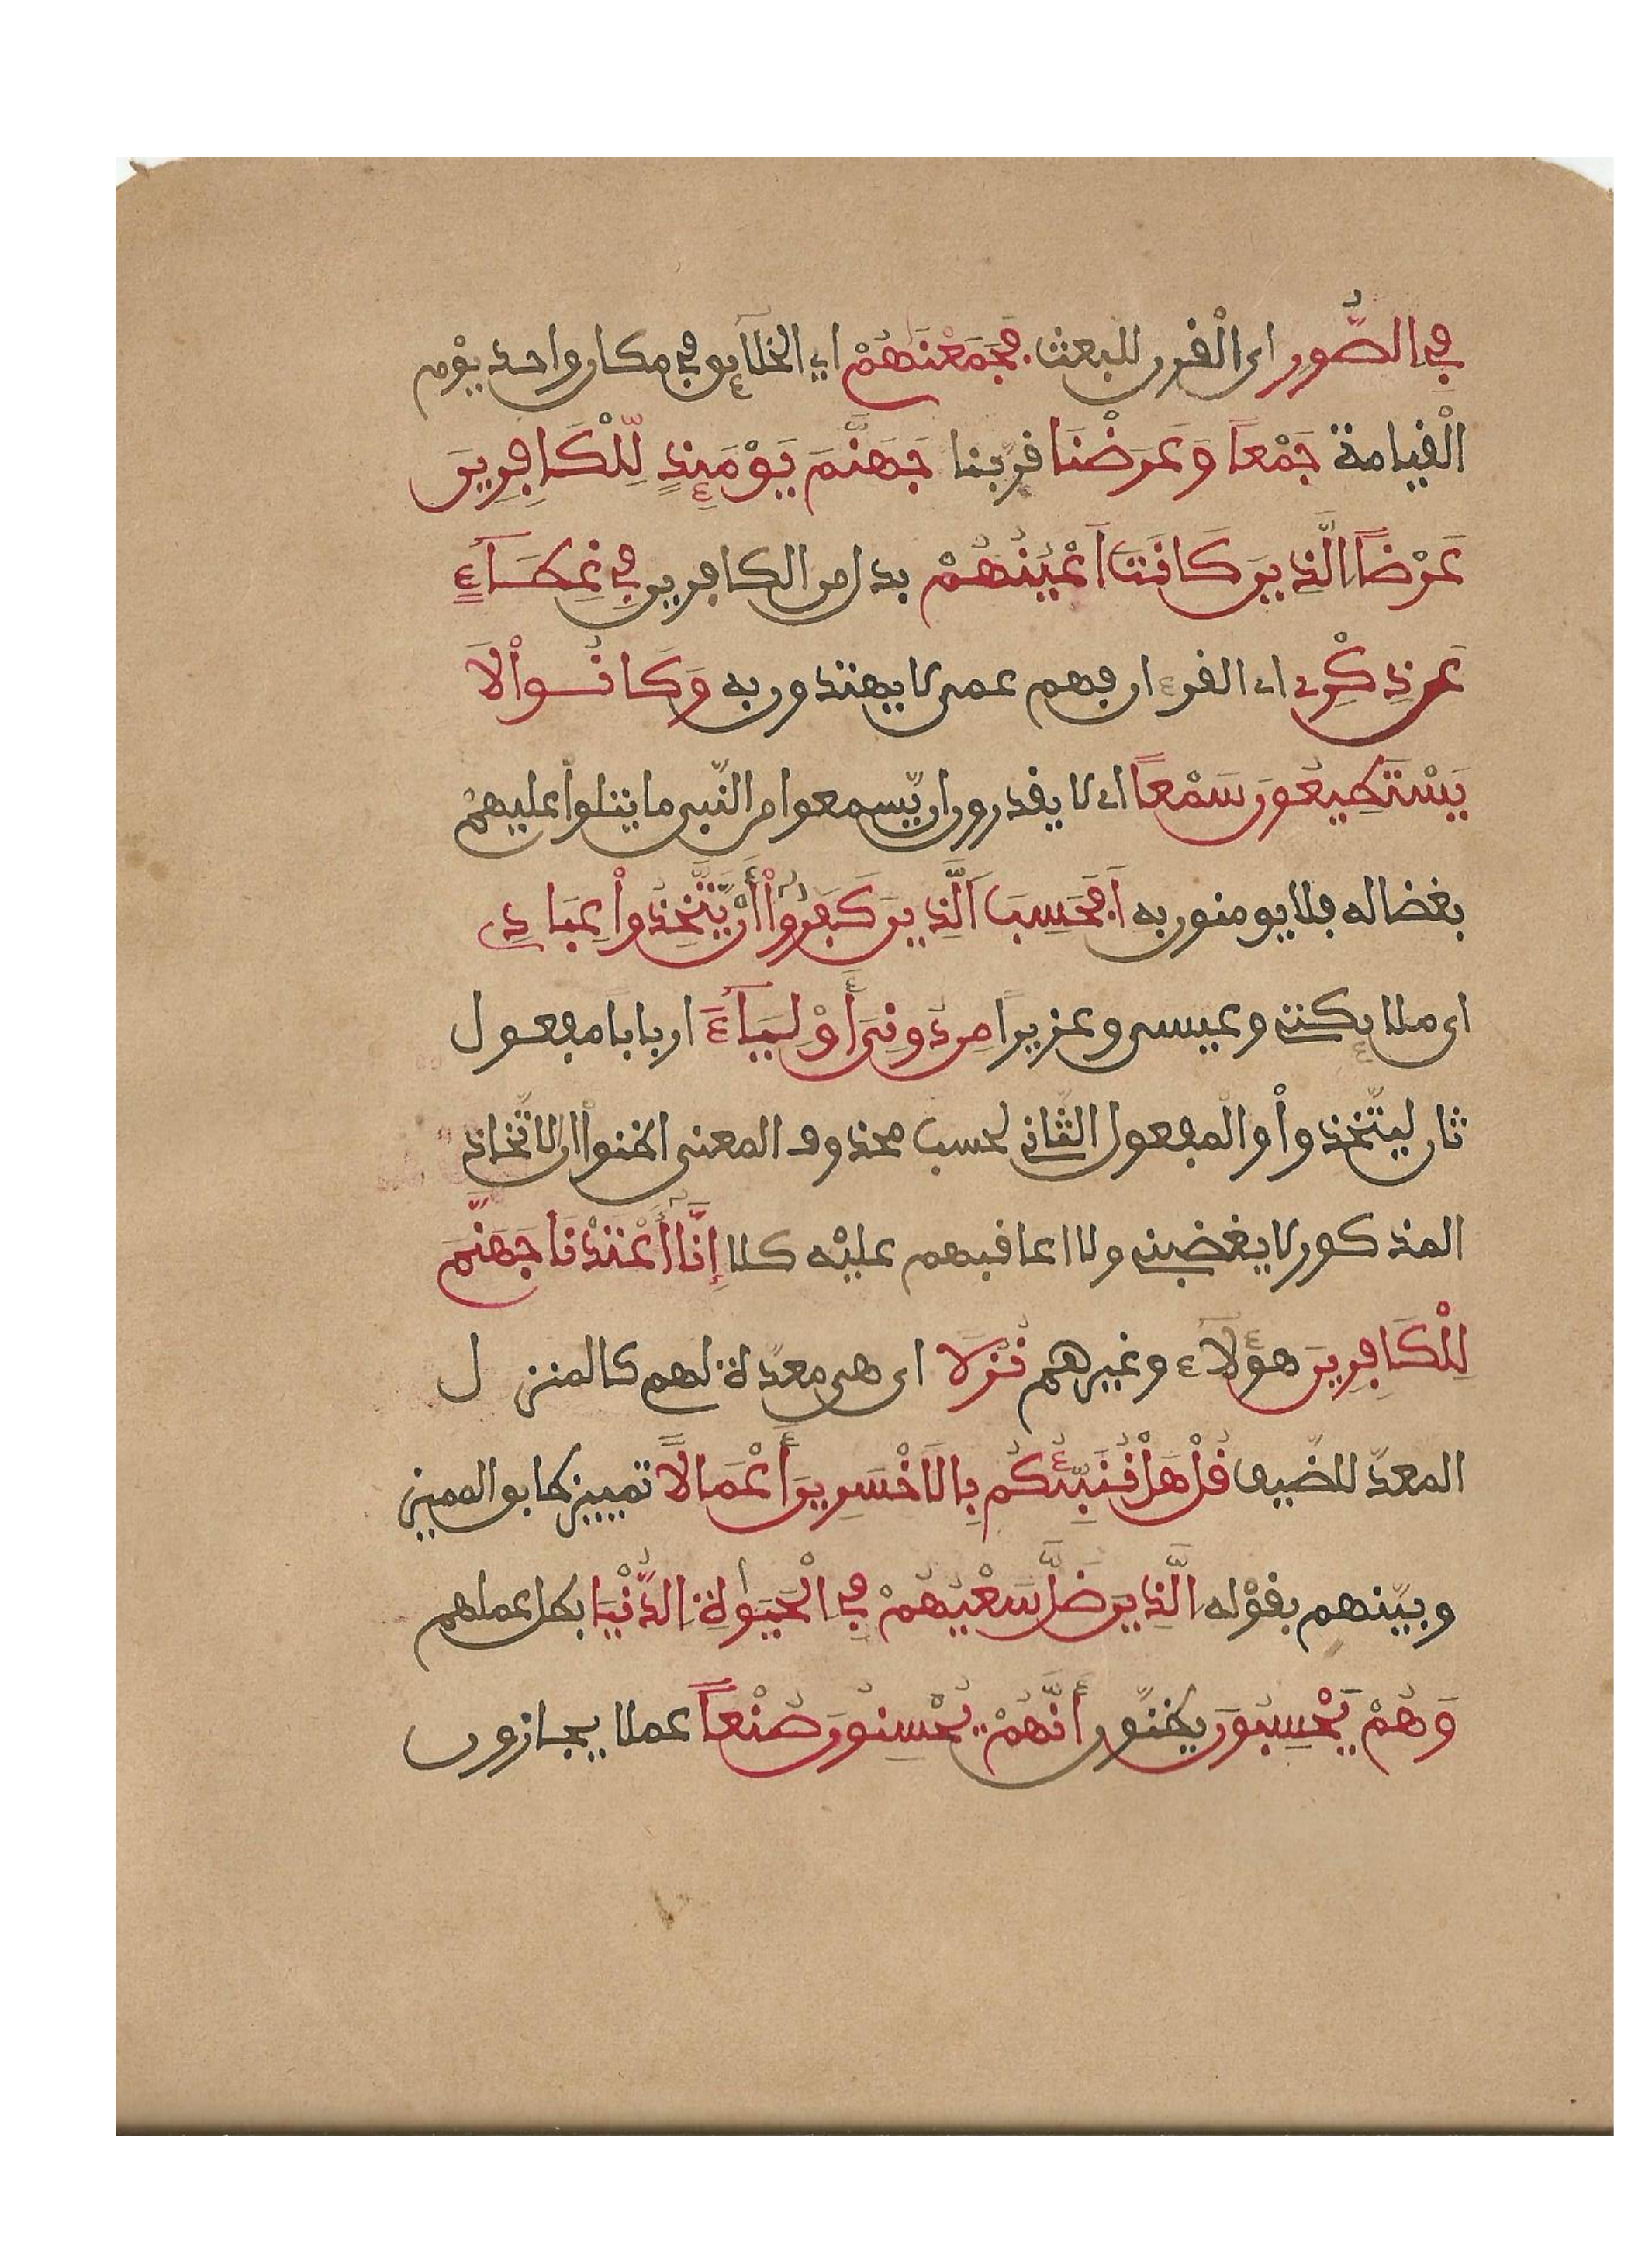 فِي الصُّورِ اى الْقرن للبعث. فَجَمَعْنَٰهُمْ اي الخلآئق في مكان واحد يوْم
الْقيامة جَمْعاً وَعَرَضْنَا قرّبنا جَهَنَّمَ يَوْمَئِذٍ لِّلْكَٰفِرِينَ
عَرْضاً اَلَّذِينَ كَانَتَ اَعْيُنُهُمْ بدل من الكافرين فِي غِطَآءٍ
عَن ذِكْرِے اى القرءان فهم عمى لا يهتدون به وَكَانُواْ لَا
يَسْتَطِيعُونَ سَمْعاً اى لا يقدرون ان يّسمعوا من النّبى ما يتلواْ عليهمْ
بغضا له فلا يومنون به اَ.فَحَسِبَ اَلَّذِينَ كَفَرُوٓاْ أَنْ يَّتَّخِذُواْ عِبَادِے
اى ملايكتى وعيسى وعزيراً مِن دُونِىَ أَوْلِيَآءَ اربابا مفعول
ثان ليتّخذواْ والْمفعول الثّانى لحسب محذوف المعنى اظنواْ ان الاتّخاذ
المذكور لا يغضبنى ولا اعاقبهم عليْه كلا إِنَّآ أَعْتَدْنَا جَهَنَّمَ
لِلْكَٰفِرِينَ هؤلآء وغيرهم نُزُلًا اى هى معدّة لهم كالمنزل
المعدّ للضّيف قُلْ هَلْ نُنَبِّئُكُم بِالَاخْسَرِينَ أَعْمَالًا تمييز طابق المميز
وبيّنهم بقوْله اَلَّذِينَ ضَلَّ سَعْيُهُمْ فِي الْحَيَوٰةِ الدُّنْيَا بطل عملهم
وَهُمْ يَحْسِبُونَ يظنّون أَنَّهُمْ يُحْسِنُونَ صُنْعاً عملا يجازون